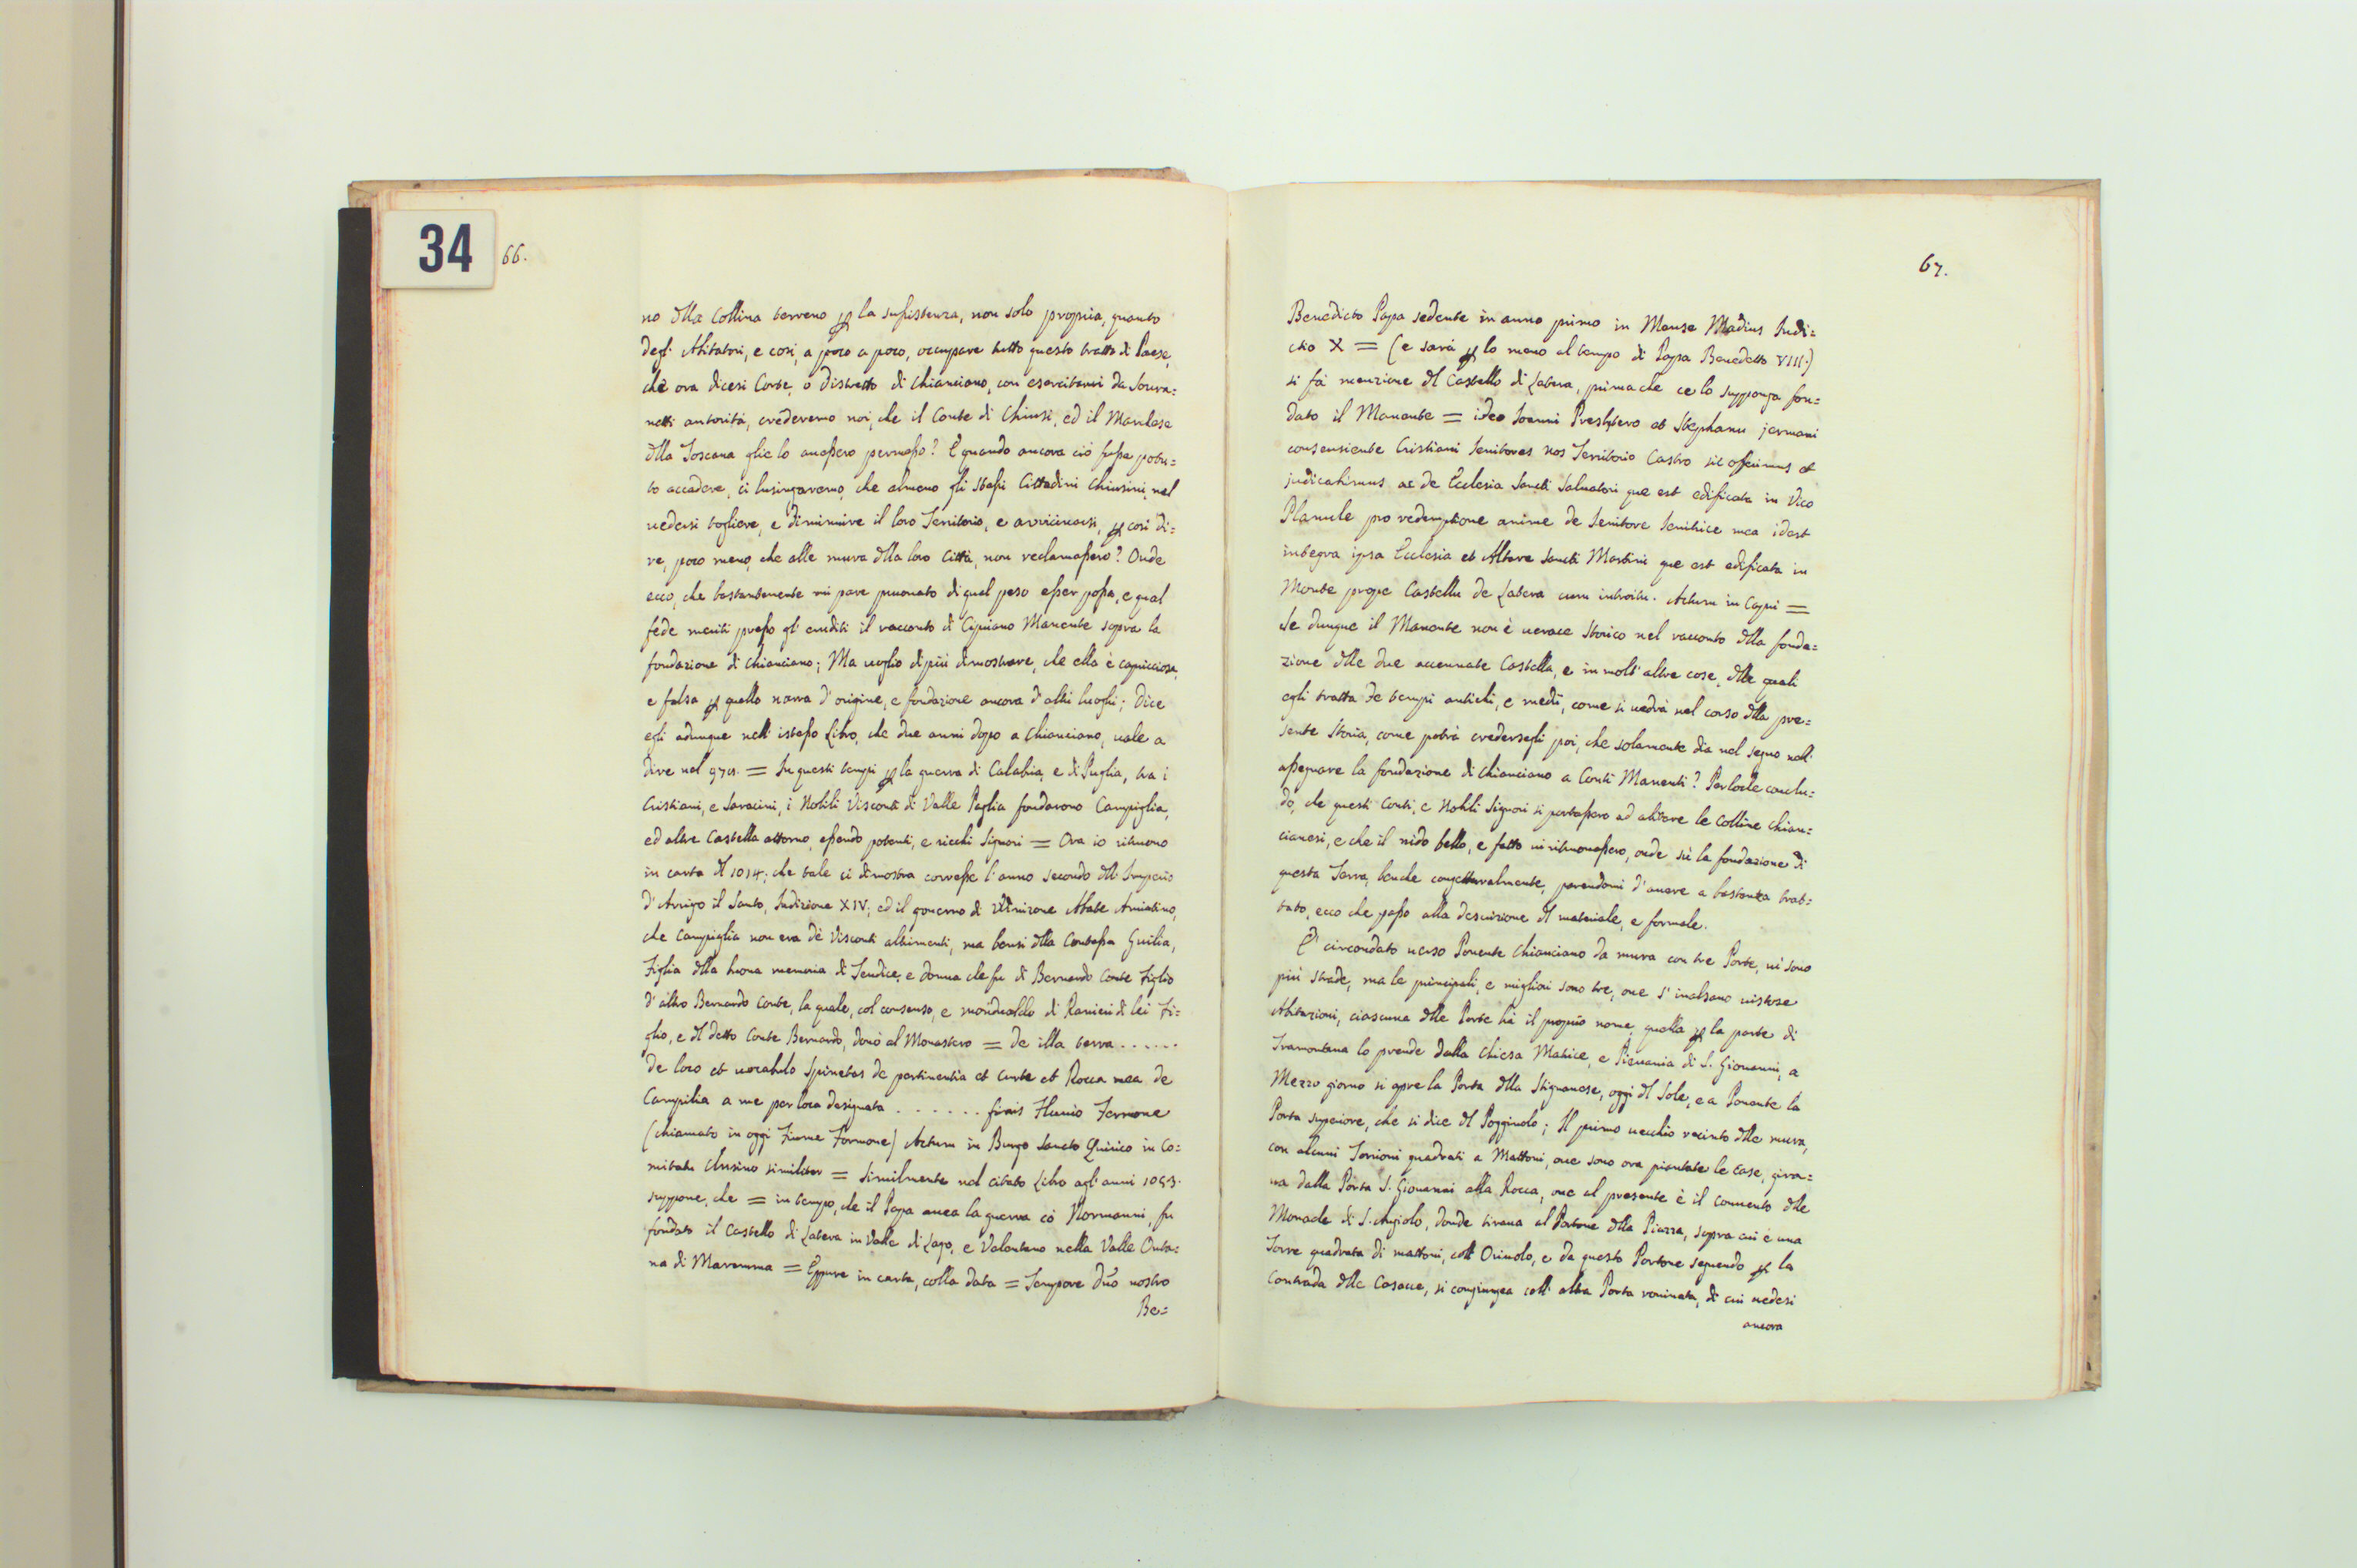 34
66.
no dlla Collina terreno p la sussistenza, non solo propria, quanto
degl' Abitatori, e così, a poco a poco, occupare tutto questo tratto di Paese,
che ora dicesi Corte, o Distretto di Chianciano, con esercitarvi da Sovra-
netti autorità, crederemo noi, che il Conte di Chiusi, ed il Marchese
dlla Toscana glie lo avessero permesso? E quando ancora ciò fusse potu=
to accadere, ci lusingaremo, che almeno gli stessi Cittadini Chiusini, nel
vedersi togliere, e diminuire il loro Territorio, e avvicinarsi, p così di=
re, poco meno, che alle mura dlla loro Città, non reclamassero? Onde
ecco, che bastantemente mi pare pruovato di qual peso esser possa, e qual
fede meriti presso gl' eruditi il racconto di Cipriano Manente sopra la
fondazione di Chianciano; Ma voglio di più dimostrare, che ella è capricciosa,
e falsa p quello narra d' origine, e fondazione ancora d' altri luoghi; Dice
egli adunque nell' istesso Libro, che due anni dopo a Chianciano, vale a
dire nel = In questi tempi p la guerra di Calabria, e di Puglia, tra i
Cristiani, e Saracini, i Nobili Visconti di Valle Paglia fondarono Campiglia,
ed altre Castella attorno, essendo potenti, e ricchi Signori = Ora io ritruovo
in carta dl 1014; che tale ci dimostra corresse l' anno secondo dll' Imperio
d' Arrigo il Santo, Indizione XIV; ed il governo di Winizone Abate Amiatino,
che Campiglia non era dè Visconti altrimenti, ma bensì dlla Contessa Guilia,
Figlia dlla buona memoria di Teudice, e donna che fu di Bernardo Conte Figlio
d' altro Bernardo Conte, la quale, col consenso, e monduallo di Ranieri di lei Fi=
glio, e dl detto Conte Bernardo, donò al Monastero = de illa terra ......
de loco et vocabulo Spinetas de pertinentia et curte et Rocca mea de
Campilia a me per loca designata ...... finis Fluvio Formone
(chiamato in oggi Fiume Formone) Actum in Burgo Sancto Quirico in Co=
mitatu Clusino similiter = Similmente nel citato Libro agl' anni 1053.
suppone, che = in tempo, che il Papa avea la guerra cò Normanni, fu
fondato il Castello di Latera in Valle di Lago, e Valentano nella Valle Onta=
na di Maremma = Eppure in carta, colla data = Tempore dno nostro
Be=
67.
Benedicto Papa sedente in anno primo in Mense Madius Indi=
ctio X = (e sarà p lo meno al tempo di Papa Benedetto VIII.)
si fà menzione dl Castello di Latera, prima che ce lo supponga fon=
dato il Manente = ideo Joanni Presbitero et Stephanu jermani
consensiente Cristiani Senitores nos Territorio Castro sic offerimus et
judicabimus ac de Ecclesia Sancti Salvatori que est edificata in Vico
Planule pro redemptione anime de Senitore Senitrice mea idest
integra ipsa Ecclesia et Altare Sancti Martini que est edificata in
Monte prope Castellu de Latera cum introitu. Actum in Capui =
Se dunque il Manente non è verace Storico nel racconto dlla fonda=
zione dlle due accennate Castella, e in molt' altre cose, dlle quali
egli tratta de tempi antichi, e medi, come si vedrà nel corso dlla pre=
sente Storia, come potrà credersegli poi, che solamente dia nel segno nell'
assegnare la fondazione di Chianciano a Conti Manenti? Perloche conclu=
do, che questi Conti, e Nobili Signori si portassero ad abitare le Colline Chian=
cianesi, e che il nido bello, e fatto vi ritruovassero, onde sù la fondazione di
questa Terra, benche congetturalmente, parendomi d' avere a bastanza trat=
tato, ecco che passo alla descrizione dl materiale, e formale.
E' circondato verso Ponente Chianciano da mura con tre Porte, vi sono
più strade, ma le principali, e migliori sono tre, ove s' inalzano vistose
Abitazioni, ciascuna dlle Porte hà il proprio nome, quella p la parte di
Tramontana lo prende dalla Chiesa Matrice, e Pievania di S. Giovanni, a
Mezzo giorno si apre la Porta dlla Stignanese, oggi dl Sole, e a Ponente la
Porta superiore, che si dice dl Poggiuolo; Il primo vecchio recinto dlle mura,
con alcuni Torrioni quadrati a Mattoni, ove sono ora piantate le Case, gira=
va dalla Porta S. Giovanni alla Rocca, ove al presente è il Convento dlle
Monache di S. Angiolo, donde tirava al Portone dlla Piazza, sopra cui è una
Torre quadrata di mattoni, coll' Oriuolo, e da questo Portone seguendo p la
Contrada dlle Casacce, si congiungea coll' altra Porta rovinata, di cui vedesi
ancora